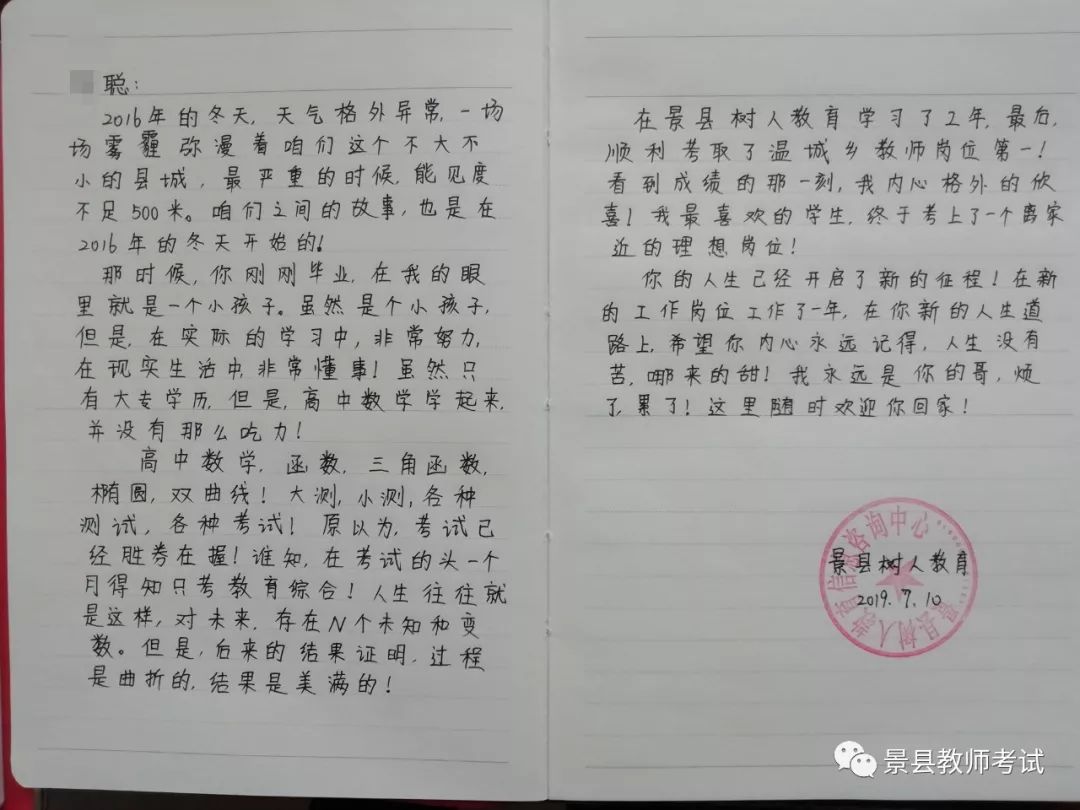 聪：
2016年的冬天，天气格外异常，一场
场雾霾弥漫着咱们这个不大不
小的县城，最严重的时候，能见度
不足500米。咱们之间的故事，也是在
2016年的冬天开始的！
那时候，你刚刚毕业，在我的眼
里就是一个小孩子。虽然是个小孩子，
但是，在实际的学习中，非常努力，
在现实生活中，非常懂事！虽然只
有大专学历，但是，高中数学学起来，
并没有那么吃力！
高中数学，函数，三角函数，
椭圆，双曲线！大测，小测，各种
测试，各种考试！原以为，考试已
经胜券在握！谁知，在考试的头一个
月得知只考教育综合！人生往往就
是这样，对未来，存在N个未知和变
数。但是，后来的结果证明，过程
是曲折的，结果是美满的！
在景县树人教育学习了2年，最后，
顺利考取了温城乡教师岗位第一！
看到成绩的那一刻，我内心格外的欣
喜！我最喜欢的学生，终于考上了一个离家
近的理想岗位！
你的人生已经开启了新的征程！在新
的工作岗位工作了一年，在你新的人生道
路上，希望你内心永远记得，人生没有
苦，哪来的甜！我永远是你的哥，烦
了，累了！这里随时欢迎你回家！
景县树人教育
2019.7.10
景县树人教育信息咨询中心
景县教师考试